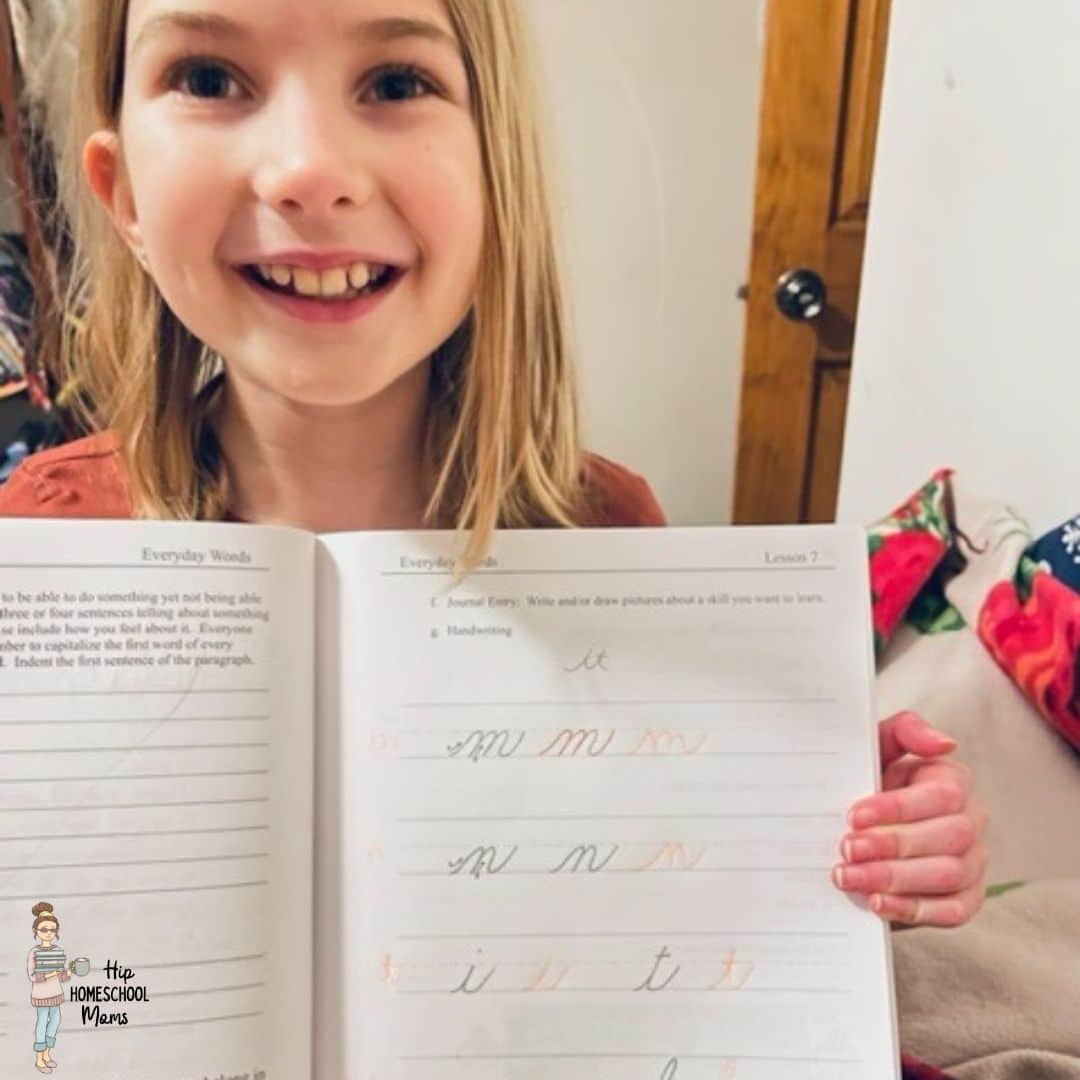 Everyday Words
to be able to do something yet not being able
three or four sentences telling about something
se include how you feel about it. Everyone
mber to capitalize the first word of every
Indent the first sentence of the paragraph.
Everyday Words
Lesson 7
f. Journal Entry: Write and/or draw pictures about a skill you want to learn.
g. Handwriting
it
m m m
n n n
i i t t
Hip
HOMESCHOOL
Moms